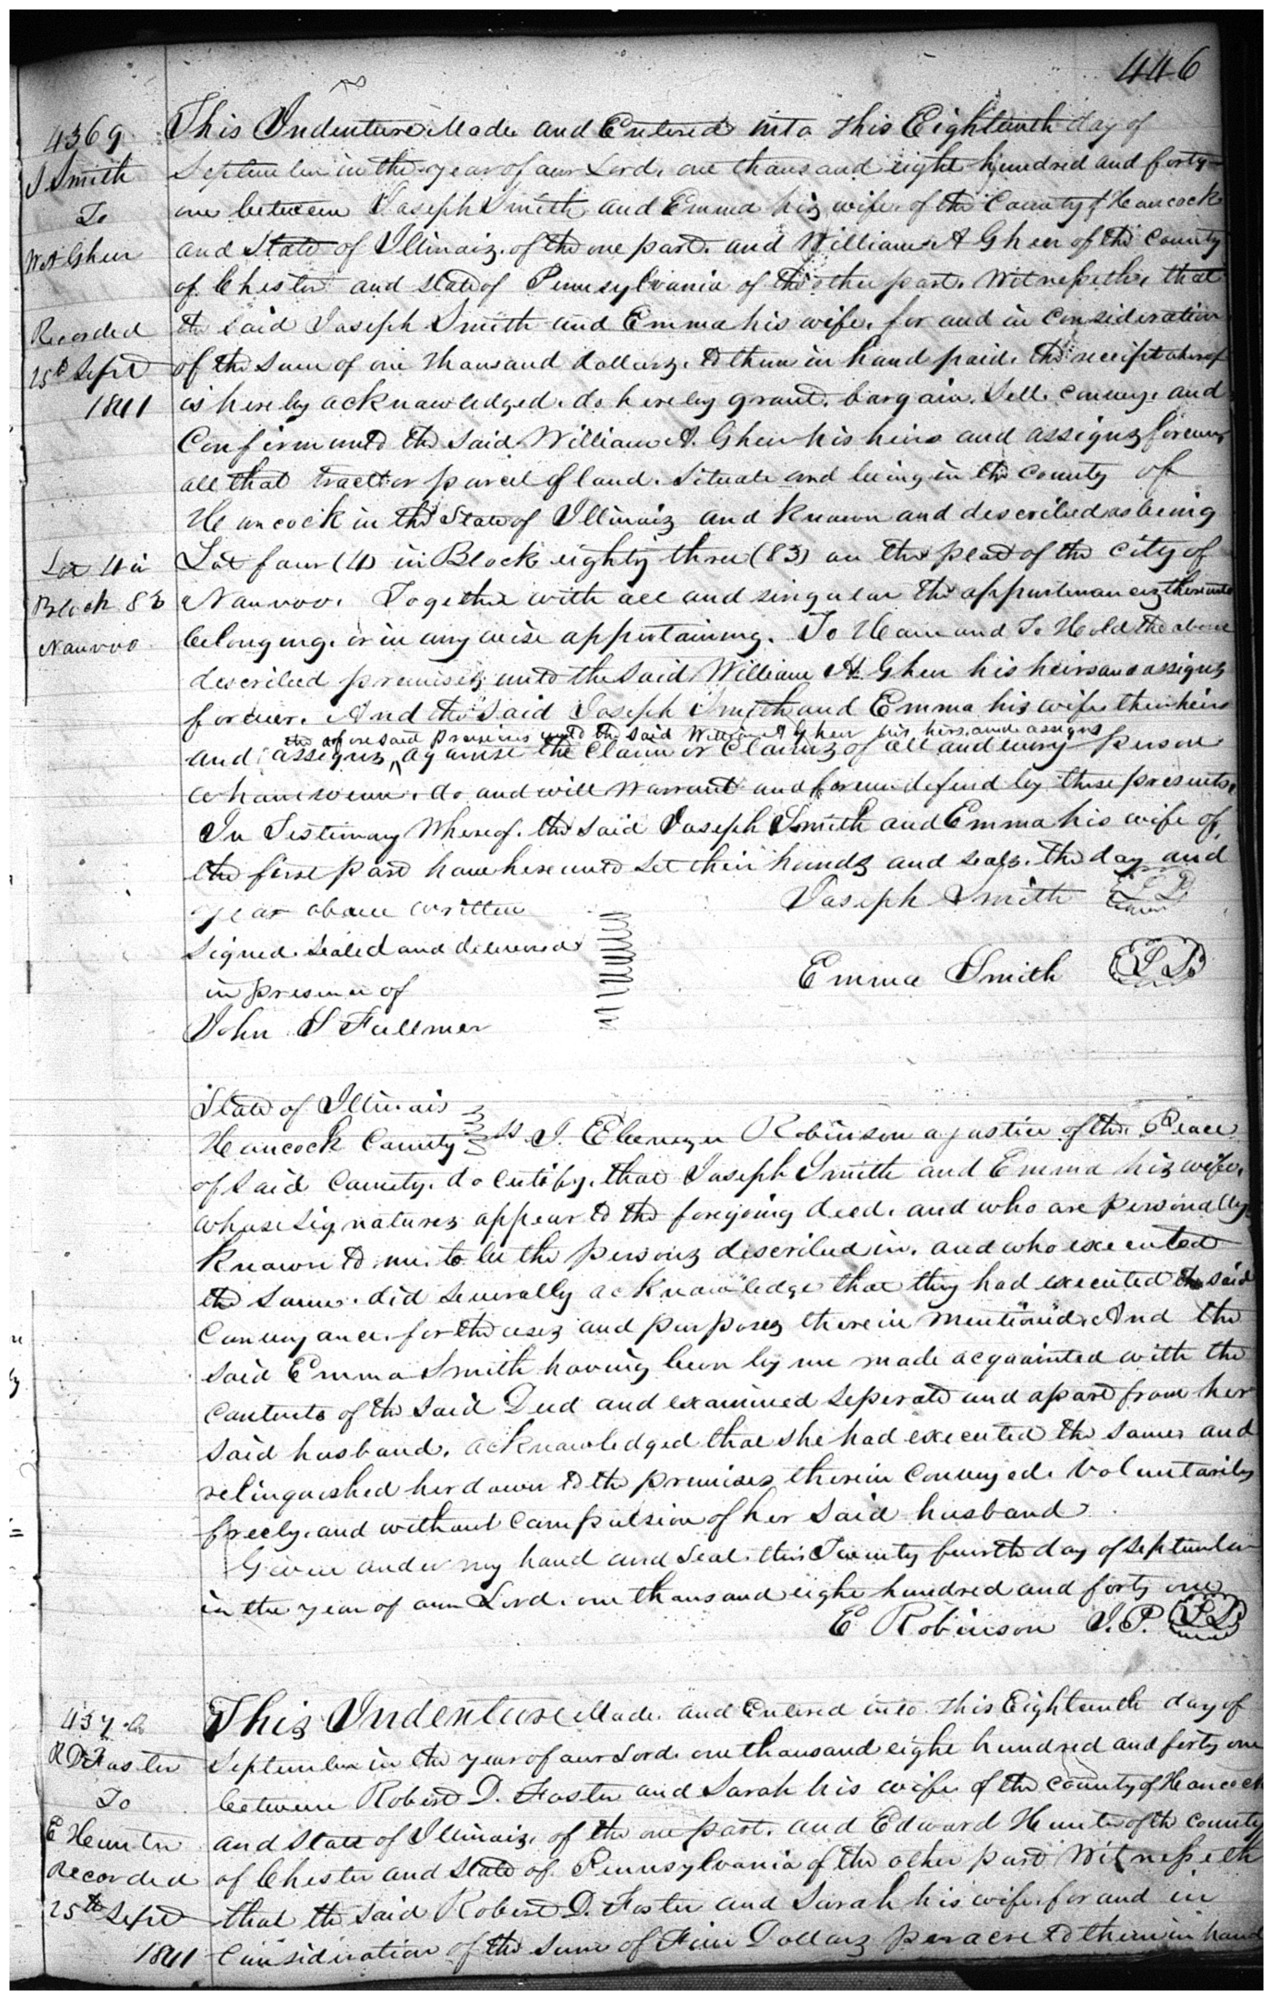 446
4369
J Smith
To
Wm A Gheen
Recorded
25th Sept
1841
This Indenture Made and Entered into this Eighteenth day of
September in the year of our Lord, one thousand eight hundred and forty-
one between Joseph Smith and Emma his wife of the County of Hancock
and State of Illinois, of the one part, and William A Gheen of the County
of Chester and State of Pennsylvania of the other part, Witnesseth, that
the said Joseph Smith and Emma his wife, for and in consideration
of the sum of one thousand dollars, to them in hand paid, the receipt whereof
is hereby acknowledged, do hereby grant, bargain, Sell, convey, and
Confirm unto the said William A. Gheen his heirs and assigns forever
all that tract or parcel of land, Situate and being in the County of
Hancock in the State of Illinois and known and described as being
Lot 4 in
Block 83
Nauvoo
Lot four (4) in Block eighty three (83) on the plat of the City of
Nauvoo. Together with all and singular the appurtenances thereunto
belonging, or in any wise appertaining. To Have and To Hold the above
described premises unto the said William A. Gheen his heirs and assigns
forever. And the said Joseph Smith and Emma his wife their heirs
the aforesaid premises unto the said William A Gheen his heirs and assigns
and assigns, against the claim or claims of all and every person
whomsoever, do and will warrant and forever defend by these presents.
In Testimony Whereof, the said Joseph Smith and Emma his wife of
the first part have hereunto set their hands and seals, the day and
year above written
Joseph Smith
signed, sealed and delivered
in presence of
Emma Smith
John S Fullmer
State of Illinois
Hancock County ss I, Ebenezer Robinson a justice of the Peace
of said County, do certify, that Joseph Smith and Emma his wife,
whose signatures appear to the foregoing deed, and who are personally
known to me, to be the persons described in, and who executed
the same, did severally acknowledge that they had executed the said
Conveyance, for the uses and purposes therein mentioned, And the
said Emma Smith having been by me made acquainted with the
contents of the said Deed and examined seperate and apart from her
said husband, acknowledged that she had executed the same, and
relinquished her dower to the premises therein conveyed, Voluntarily
freely, and without compulsion of her said husband
Given under my hand and seal, this Twenty fourth day of September
in the year of our Lord, one thousand eight hundred and forty one
E Robinson J.P.
R D Foster
To
E Hunter
Recorded
25th Sept
1841
This Indenture Made and Entered into this Eighteenth day of
September in the year of our Lord one thousand eight hundred and forty one
between Robert D. Foster and Sarah his wife of the County of Hancock
and State of Illinois, of the one part, and Edward Hunter of the County
of Chester and State of Pennsylvania of the other part Witnesseth
that the said Robert D. Foster and Sarah his wife, for and in
Consideration of the sum of Five Dollars per acre to them in hand